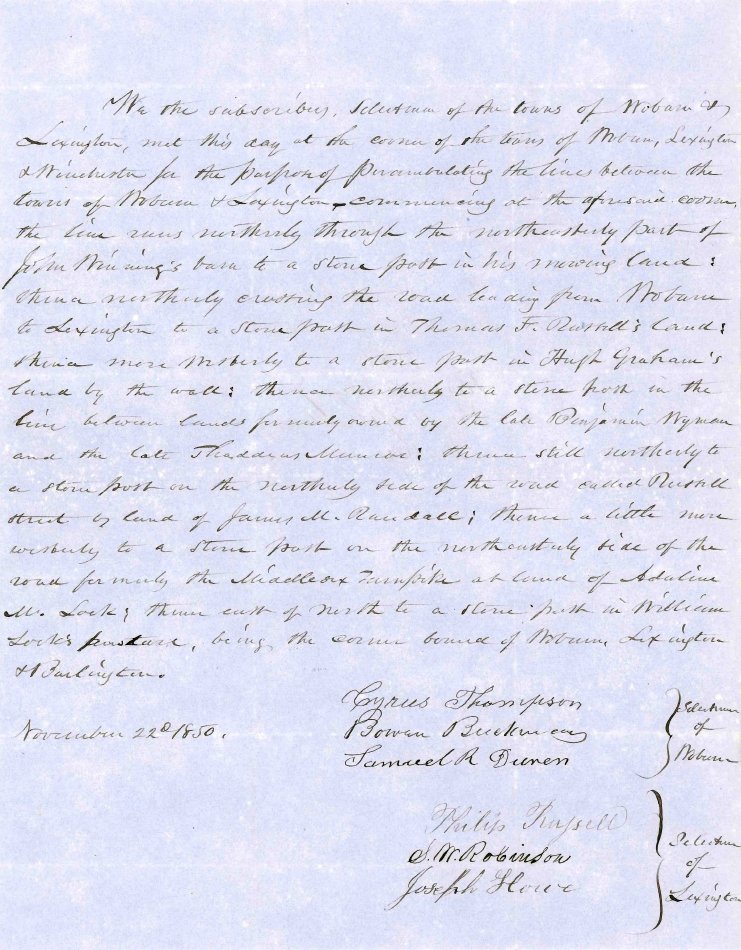 We the subscribers, Selectmen of the towns of Woburn &
Lexington, met this day at the corner of the towns of Woburn, Lexington
& Winchester for the purpose of perambulating the lines between the
towns of Woburn & Lexington, commencing at the aforesaid corner,
the line runs northerly through the northeasterly part of
John Winning's barn to a stone post in his mowing land;
thence northerly crossing the road leading from Woburn
to Lexington to a stone post in Thomas F. Russell's land;
thence more westerly to a stone post in Hugh Graham's
land by the wall; thence northerly to a stone post in the
line between lands formerly owned by the late Benjamin Wyman
and the late Thaddeus Munroe; thence still northerly to
a stone post on the northerly side of the road called Russell
street by land of James M. Randall; thence a little more
westerly to a stone post on the northeasterly side of the
road formerly the Middlesex Turnpike at land of Adaline
M. Lock; thence east of north to a stone post in William
Lock's pasture, being the corner bound of Woburn, Lexington
& Burlington.
November 22d 1850.
Cyrus Thompson
Bowen Buckman
Samuel R Duren
Selectmen
of
Woburn
Philip Russell
S. W. Robinson
Joseph Howe
Selectmen
of
Lexington